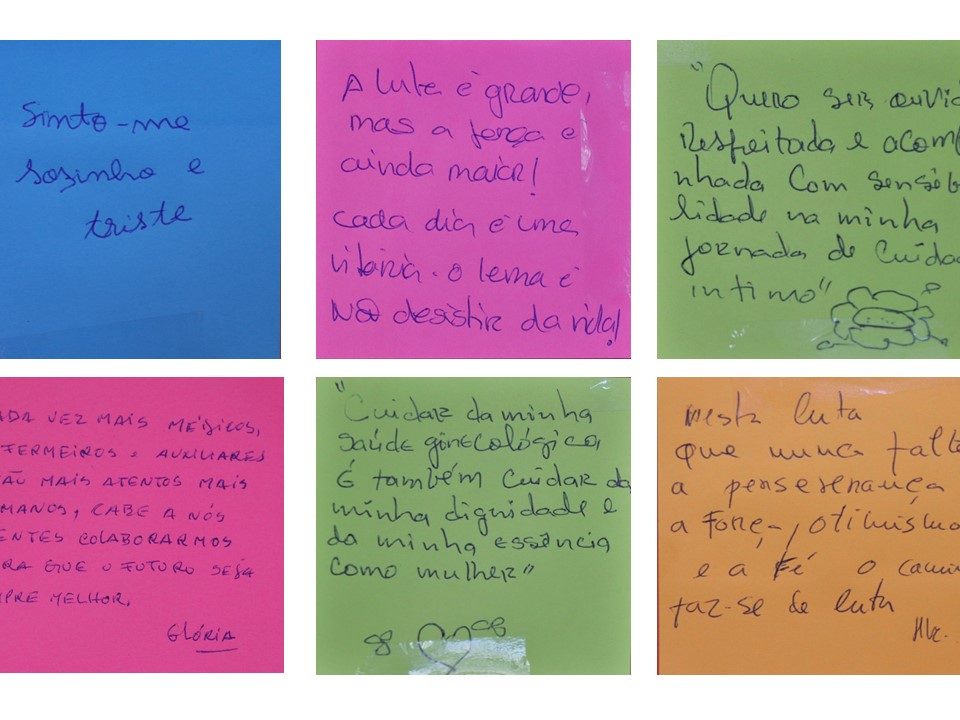 Sinto-me
sozinho e
triste
A luta é grande,
mas a força é
ainda maior!
Cada dia é uma
vitória. O lema é
Não desistir da vida!
"Quero ser ouvi
Respeitada e acom
nhada com sensib
lidade na minha
jornada de cuida
intimo"
ADA VEZ MAIS MÉDICOS,
FERMEIROS E AUXILIARES
TÃO MAIS ATENTOS MAIS
MANOS, CABE A NÓS
ENTES COLABORARMOS
RA QUE O FUTURO SEJA
MPRE MELHOR.
GLÓRIA
"Cuidar da minha
saúde ginecológica,
É também cuidar da
minha dignidade e
da minha essência
como mulher"
Nesta luta
que nunca falte
a perseverança
a Força, otimismo
e a Fé o cami
faz-se de luta